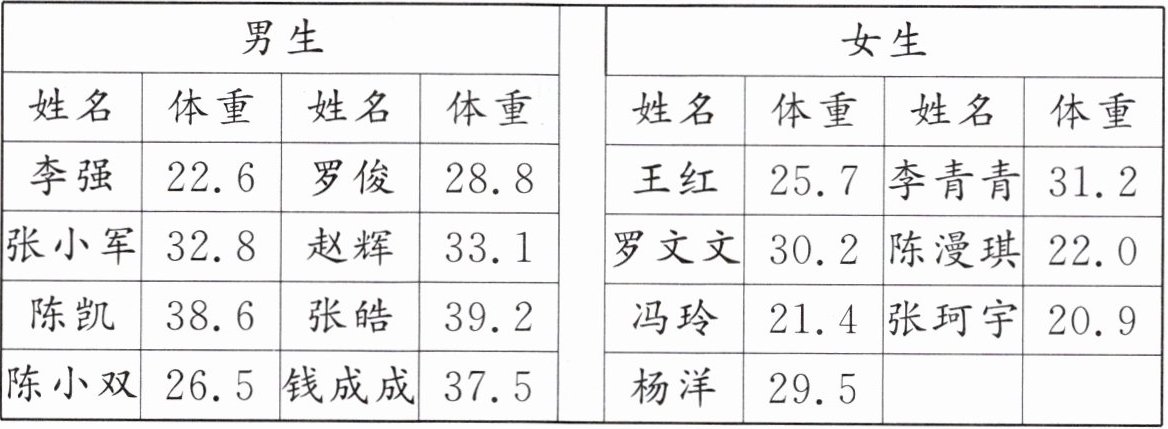 男生 女生
姓名 体重 姓名 体重 姓名 体重 姓名 体重
李强 22.6 罗俊 28.8 王红 25.7 李青青 31.2
张小军 32.8 赵辉 33.1 罗文文 30.2 陈漫琪 22.0
陈凯 38.6 张皓 39.2 冯玲 21.4 张珂宇 20.9
陈小双 26.5 钱成成 37.5 杨洋 29.5